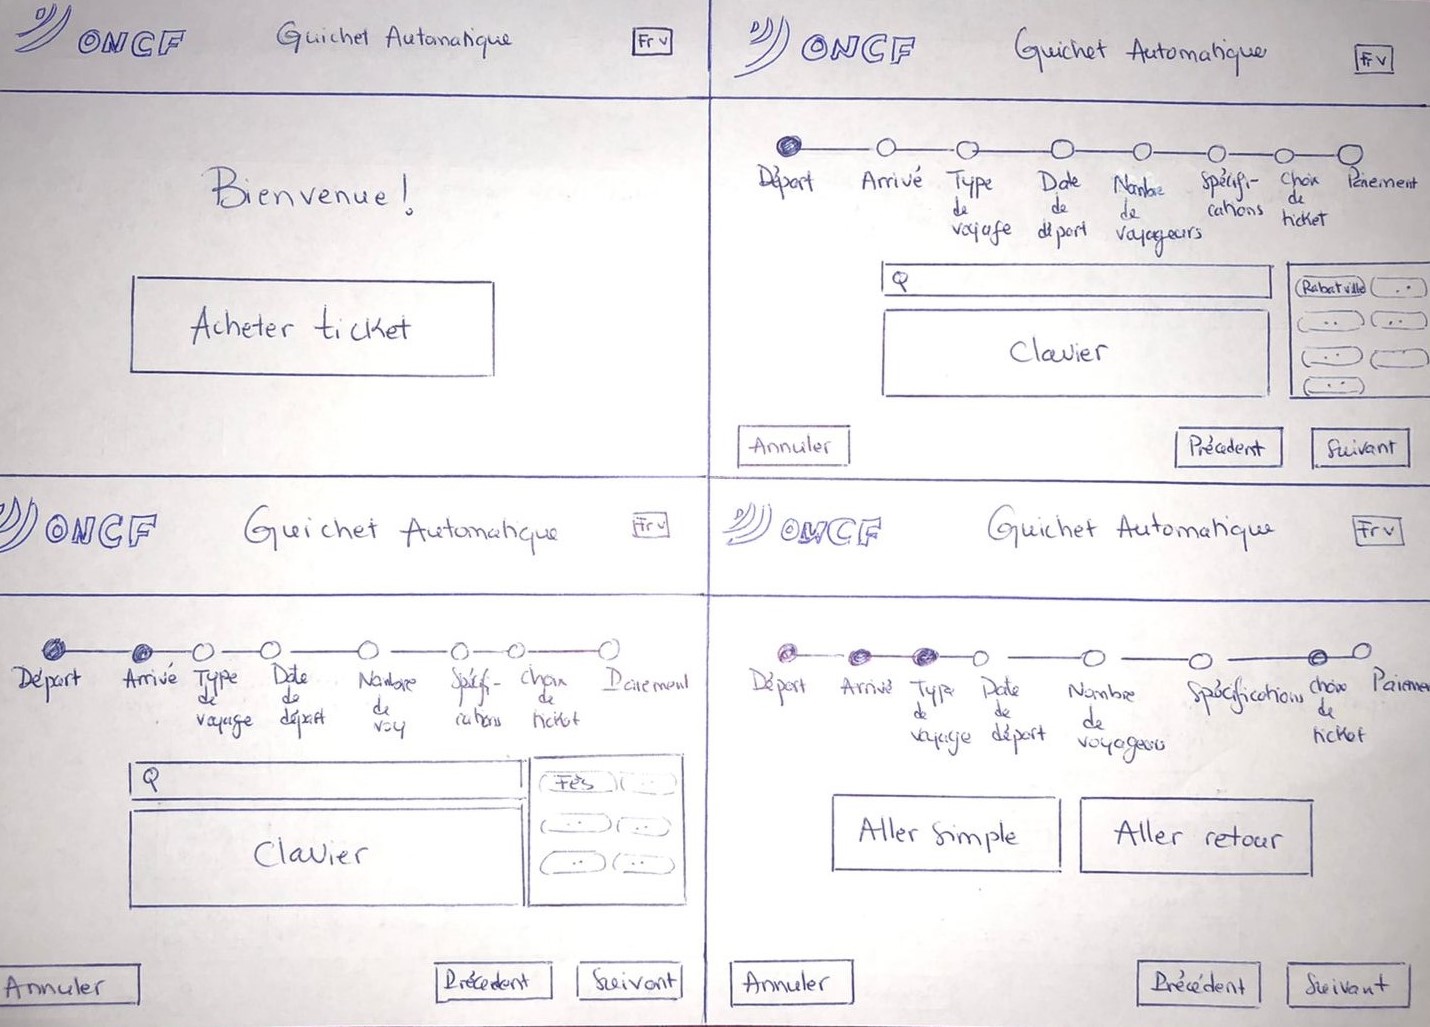 ONCF Guichet Automatique Fr v
Bienvenue !
Acheter ticket
ONCF Guichet Automatique Fr v
Départ Arrivé Type de voyage Date de départ Nombre de voyageurs Spécifi-cations Choix de ticket Paiement
Q
Rabat ville
Clavier
Annuler Précedent Suivant
ONCF Guichet Automatique Fr v
Départ Arrivé Type de voyage Date de départ Nombre de voy Spécifi-cations choix de ticket Paiement
Q
Fès
Clavier
Annuler Précedent Suivant
ONCF Guichet Automatique Fr v
Départ Arrivé Type de voyage Date de départ Nombre de voyageurs Spécifications choix de ticket Paiemen
Aller simple Aller retour
Annuler Précédent Suivant